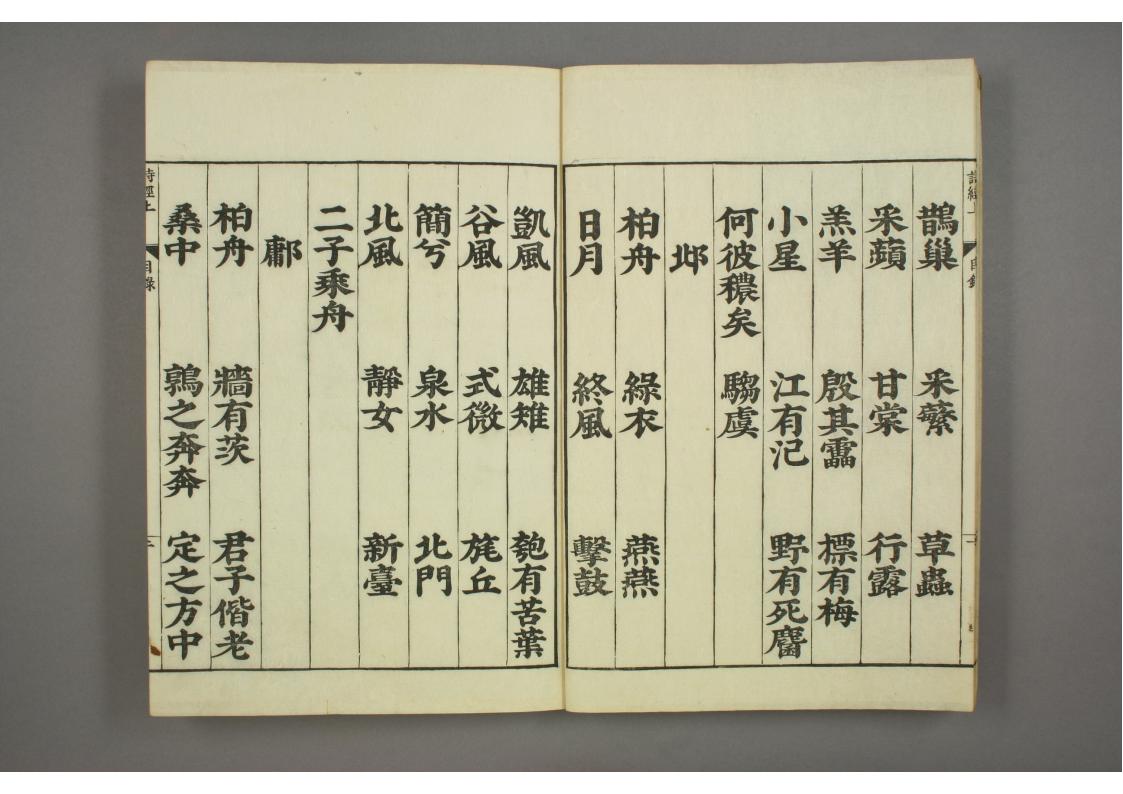 鵲巢 采蘩 草蟲
采蘋 甘棠 行露
羔羊 殷其靁 標有梅
小星 江有汜 野有死麕
何彼穠矣 騶虞
邶
柏舟 綠衣 燕燕
日月 終風 擊鼓
凱風 雄雉 匏有苦葉
谷風 式微 旄丘
簡兮 泉水 北門
北風 靜女 新臺
二子乘舟
鄘
柏舟 牆有茨 君子偕老
桑中 鶉之奔奔 定之方中
詩經上 目錄 二